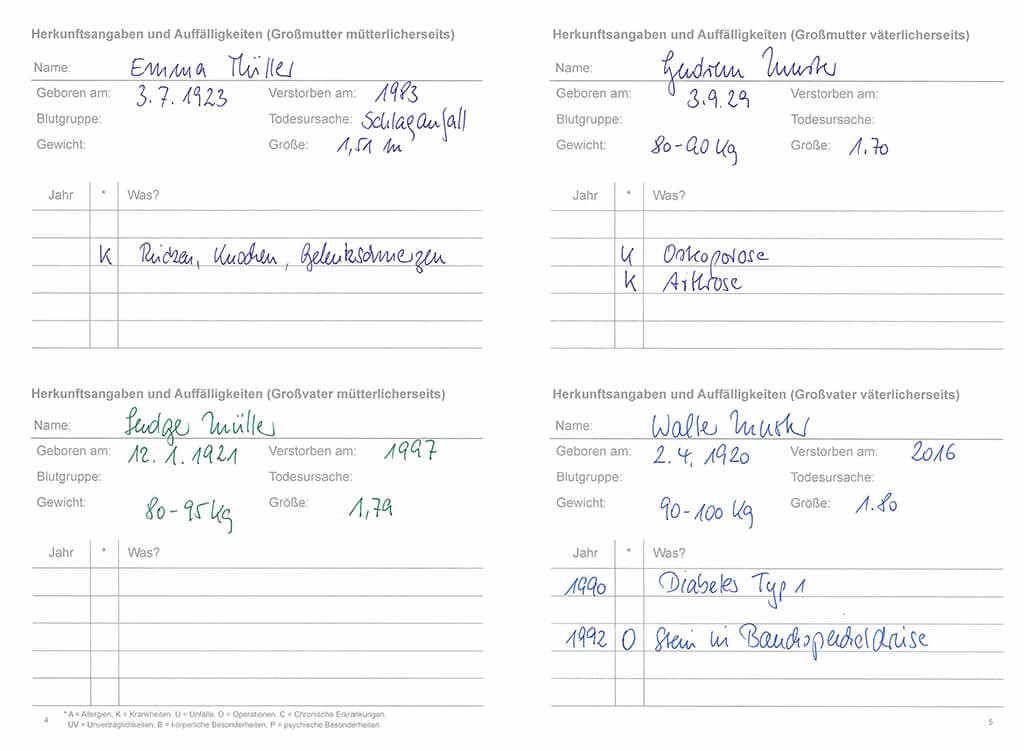 Herkunftsangaben und Auffälligkeiten (Großmutter mütterlicherseits)
Name: Emma Müller
Geboren am: 3.7.1923 Verstorben am: 1983
Blutgruppe: Todesursache: Schlaganfall
Gewicht: Größe: 1,51 m
Jahr * Was?
K Rücken, Knochen, Gelenkschmerzen
Herkunftsangaben und Auffälligkeiten (Großvater mütterlicherseits)
Name: Müller
Geboren am: 12.1.1921 Verstorben am: 1997
Blutgruppe: Todesursache:
Gewicht: 80-95 kg Größe: 1,79
Jahr * Was?
4
* A = Allergien, K = Krankheiten, U = Unfälle, O = Operationen, C = Chronische Erkrankungen,
UV = Unverträglichkeiten, B = körperliche Besonderheiten, P = psychische Besonderheiten
Herkunftsangaben und Auffälligkeiten (Großmutter väterlicherseits)
Name: Gudrun Muster
Geboren am: 3.9.29 Verstorben am:
Blutgruppe: Todesursache:
Gewicht: 80-90 kg Größe: 1.70
Jahr * Was?
K Osteoporose
K Arthrose
Herkunftsangaben und Auffälligkeiten (Großvater väterlicherseits)
Name: Walter Muster
Geboren am: 2.4.1920 Verstorben am: 2016
Blutgruppe: Todesursache:
Gewicht: 90-100 kg Größe: 1.80
Jahr * Was?
1990 Diabetes Typ 1
1992 O Stein in Bauchspeicheldrüse
5